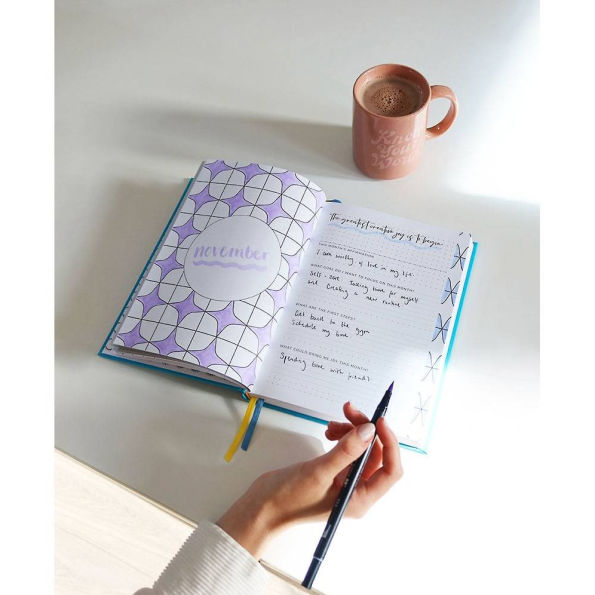 Know
Your
Worth
november
the greatest creative joy is to begin
THIS MONTH'S AFFIRMATION
I am worthy of love in my life.
WHAT GOAL DO I WANT TO FOCUS ON THIS MONTH?
Self-care. Taking time for myself
and creating a new routine
WHAT ARE THE FIRST STEPS?
Get back to the gym
Schedule my time
WHAT COULD BRING ME JOY THIS MONTH?
Spending time with friends?